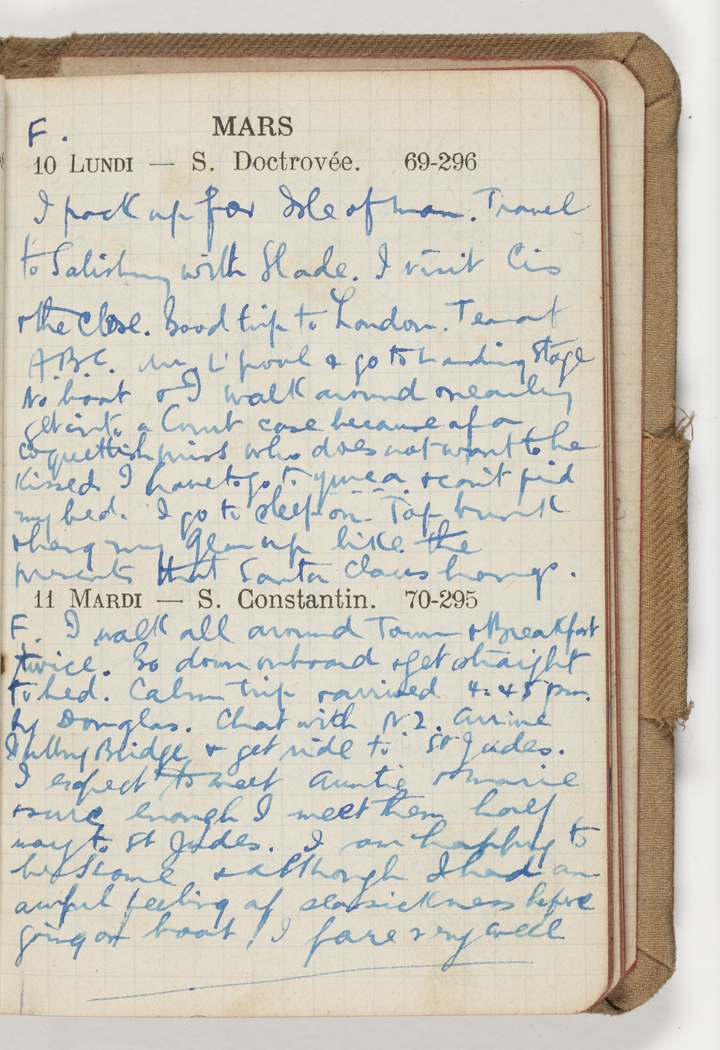 F.
MARS
10 LUNDI — S. Doctrovée. 69-296
I pack up for Isle of man. Travel
to Salisbury with Slade. I visit Cis
& the Close. Good trip to London. Tea at
A.B.C. L'pool & go to Landing Stage
No boat & I walk around & nearly
get into a Court case because of a
coquettish miss who does not want to be
kissed. I have to go to ymca & can't find
my bed. I go to sleep on Top bunk
& hang my gear up like the
presents that Santa Claus brings.
11 MARDI — S. Constantin. 70-295
F. I walk all around Town & Breakfast
twice. Go down onboard & get straight
to bed. Calm trip & arrived 4.45 pm.
by Douglas. Chat with N.Z. Arrive
Sulby Bridge & get ride to St Judes.
I expect to meet Auntie & marie
& sure enough I meet them half
way to St Judes. I am happy to
be Home & although I had an
awful feeling of seasickness before
going on boat I fare very well